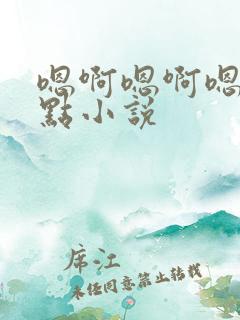 嗯啊嗯啊嗯
點小説
席江
未经同意禁止转载